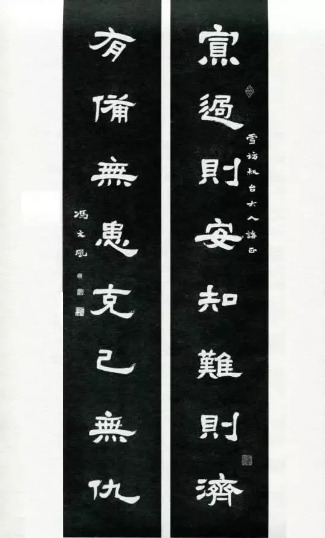 寡過則安知難則濟
雪訪叔台大人誨正
有備無患克己無仇
馮文鳳